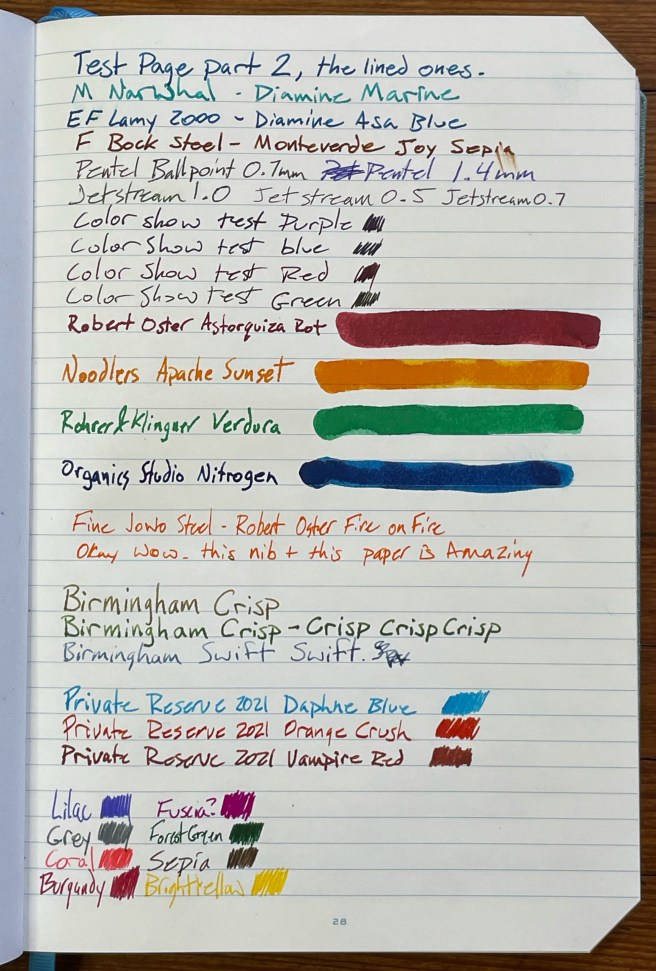 Test Page part 2, the lined ones.
M Narwhal - Diamine Marine
EF Lamy 2000 - Diamine Asa Blue
F Bock Steel - Monteverde Joy Sepia
Pentel Ballpoint 0.7mm Pentel 1.4mm
Jetstream 1.0 Jetstream 0.5 Jetstream 0.7
Color show test Purple
Color Show test blue
Color Show test Red
Color Show test Green
Robert Oster Astorquiza Rot
Noodlers Apache Sunset
Rohrer & Klingner Verdura
Organics Studio Nitrogen
Fine Jowo Steel - Robert Oster Fire on Fire
Okay wow - this nib + this paper is Amazing
Birmingham Crisp
Birmingham Crisp - Crisp Crisp Crisp
Birmingham Swift Swift.
Private Reserve 2021 Daphne Blue
Private Reserve 2021 Orange Crush
Private Reserve 2021 Vampire Red
Lilac Fuscia?
Grey Forest Green
Coral Sepia
Burgundy Bright Yellow
28